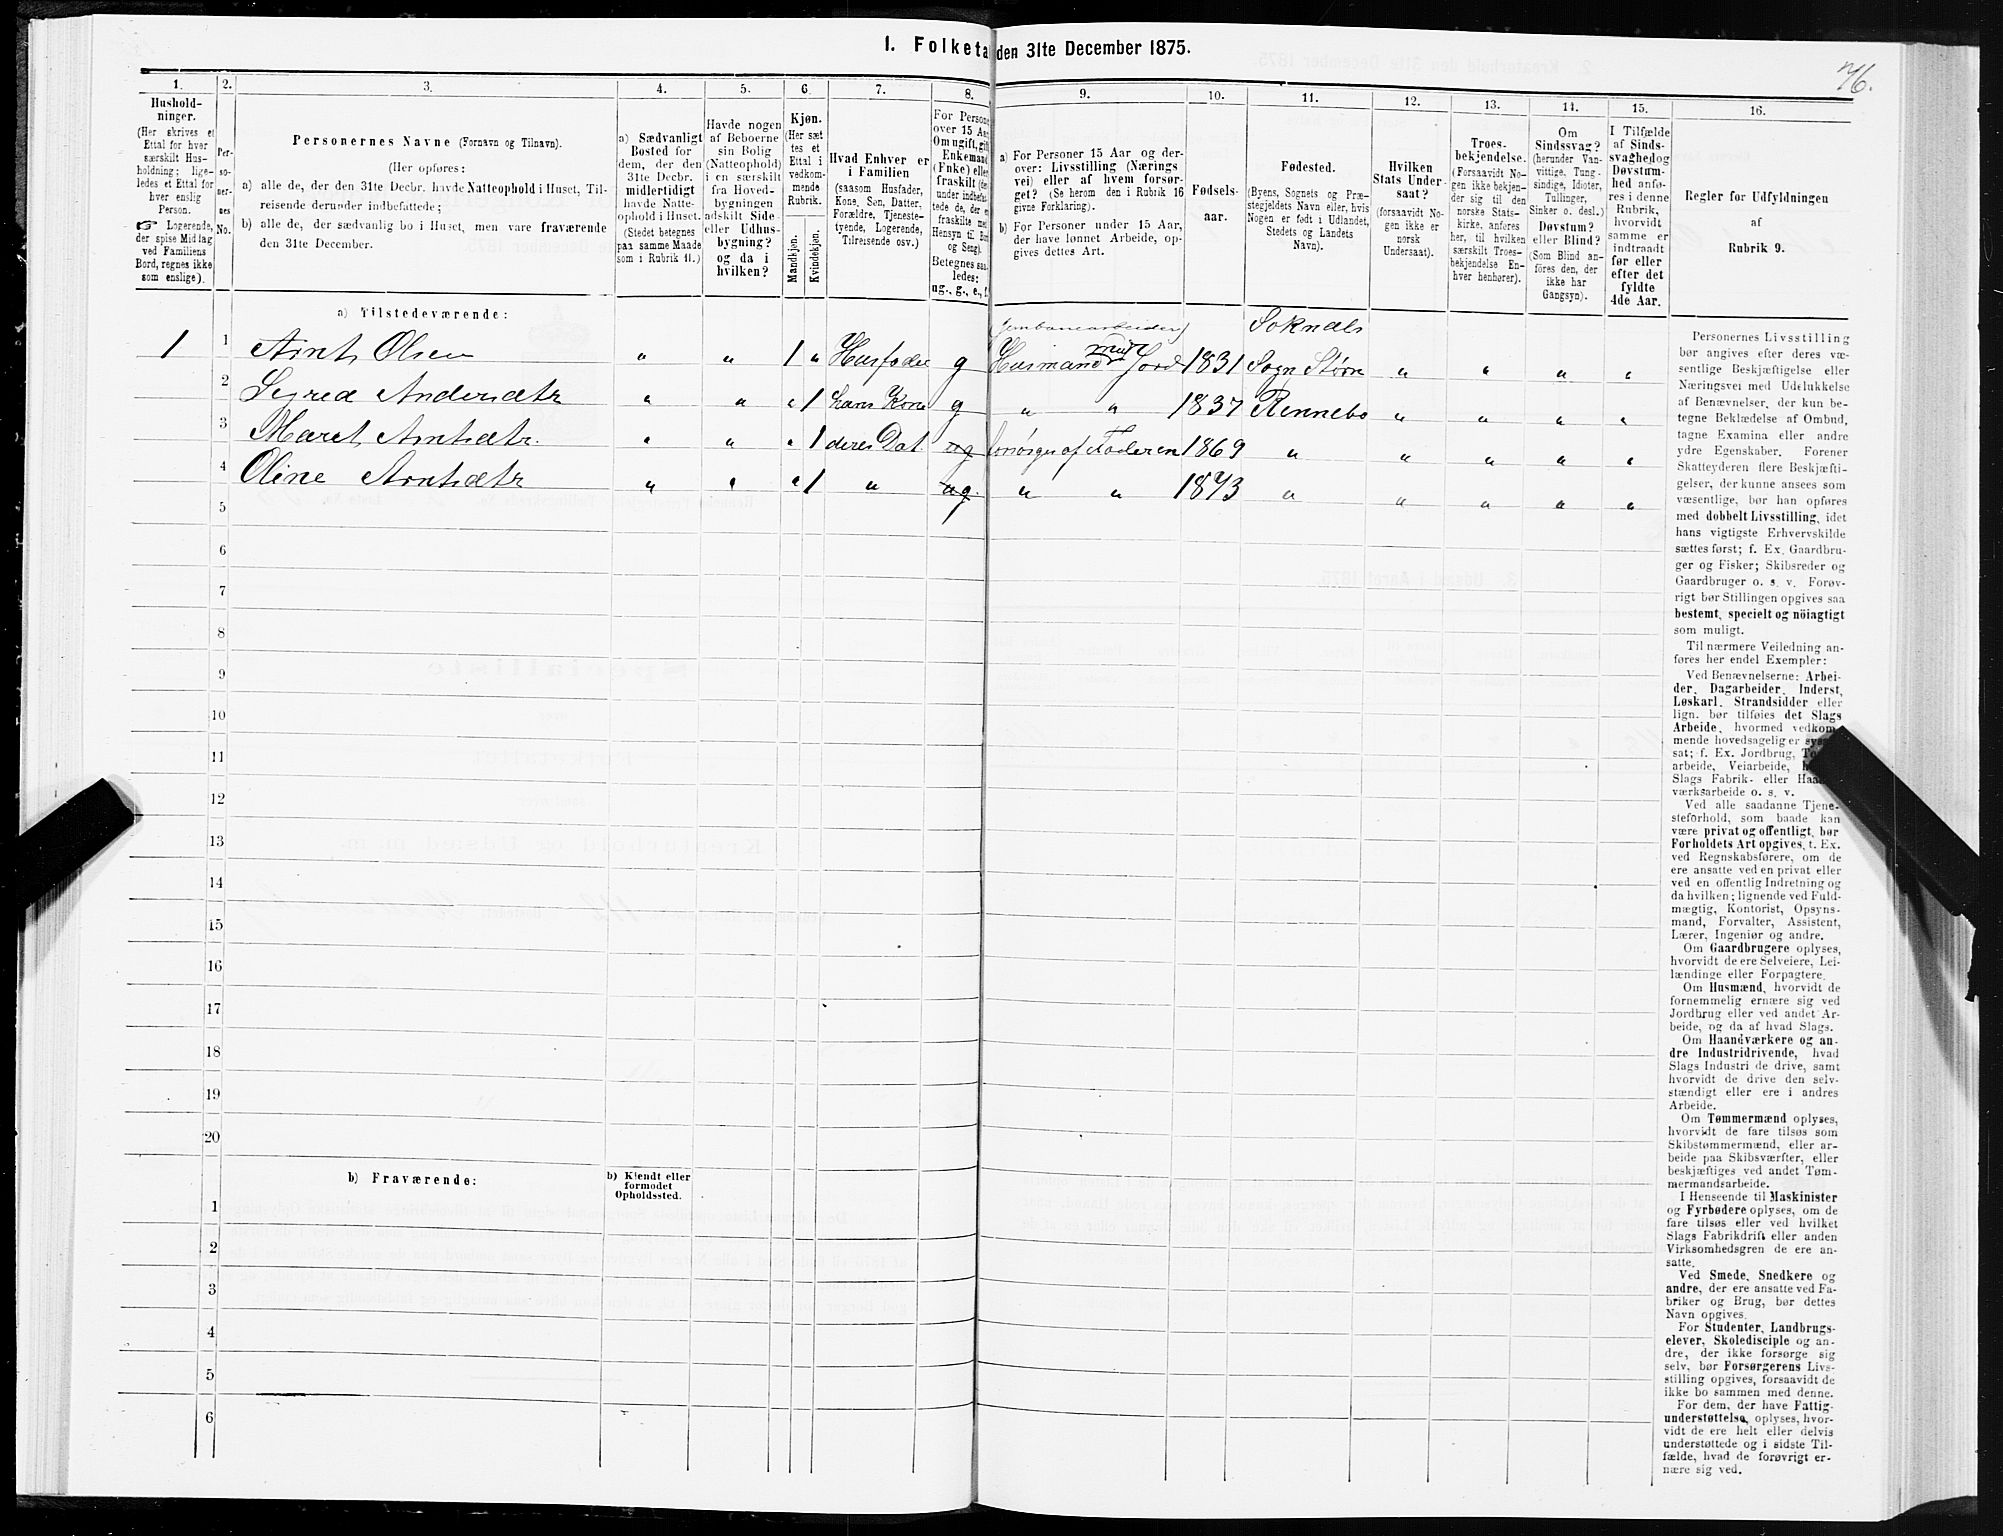 I. Folketa den 31te December 1875.
76.
1.
Hushold-
ninger.
(Her skrives et
Ettal for hver
særskilt Hus-
holdning; lige-
ledes et Ettal for
hver enslig
Person.
☞ Logerende,
der spise Middag
ved Familiens
Bord, regnes ikke
som enslige).
2.
Per-
so-
ner-
nes
No.
3.
Personernes Navne (Fornavn og Tilnavn).
(Her opføres:
a) alle de, der den 31te Decbr. havde Natteophold i Huset, Til-
reisende derunder indbefattede;
b) alle de, der sædvanlig bo i Huset, men vare fraværende
den 31te December.
4.
a) Sædvanligt
Bosted for
dem, der den
31te Decbr.
midlertidigt
havde Natte-
ophold i Huset.
(Stedet betegnes
paa samme Maade
som i Rubrik 11.)
5.
Havde nogen
af Beboerne
sin Bolig
(Natteophold)
i en særskilt
fra Hoved-
bygningen
adskilt Side-
eller Udhus-
bygning?
og da i
hvilken?
6.
Kjøn.
(Her sæt
tes et
Ettal i
vedkom-
mende
Rubrik.
Mandkjøn.
Kvindekjøn.
7.
Hvad Enhver er
i Familien
(saasom Husfader,
Kone, Søn, Datter,
Forældre, Tjeneste-
tyende, Logerende,
Tilreisende osv.)
8.
For Person
over 15 Aar
Om ugift, gift
Enkemand
(Enke) eller
fraskilt (de
under indbefat
tede de, der er
fraskilte med
Hensyn til Bord
og Seng).
Betegnes saa-
ledes:
ug., g., e., f.
9.
a) For Personer 15 Aar og der-
over: Livsstilling (Nærings
vei) eller af hvem forsør-
get? (Se herom den i Rubrik 16
givne Forklaring).
b) For Personer under 15 Aar,
der have lønnet Arbeide, op-
gives dettes Art.
10.
Fødsels-
aar.
11.
Fødested.
(Byens, Sognets og Præ-
stegjeldets Navn eller, hvis
Nogen er født i Udlandet,
Stedets og Landets
Navn).
12.
Hvilken
Stats Under-
saat?
(forsaavidt No-
gen ikke er
norsk
Undersaat).
13.
Troes-
bekjendelse.
(Forsaavidt No-
gen ikke bekjen-
der sig til den
norske Stats-
kirke, anføres
her, til hvilken
særskilt Troes-
bekjendelse En-
hver henhører).
14.
Om
Sindssvag?
(herunder Van-
vittige, Tung-
sindige, Idioter,
Tullinger,
Sinker o. desl.)
Døvstum?
eller Blind?
(Som Blind an-
føres den, der
ikke har
Gangsyn).
15.
I Tilfælde
af Sinds-
svaghed og
Døvstum-
hed anfø-
res i denne
Rubrik,
hvorvidt
samme er
indtraadt
før eller
efter det
fyldte
4de Aar.
16.
Regler for Udfyldningen
af
Rubrik 9.
a) Tilstedeværende:
(Jernbanearbeider) Soknæs
1 1 Arnt Olsen " " 1 " Husfader g Husmand med Jord 1831 Sogn Støren " " " "
2 Segred Andersdtr " " " 1 hans Kone g " " 1837 Rennebo " " " "
3 Maret Arntsdtr. " " " 1 deres Dat ug forsørges af Faderen 1869 " " " " "
4 Oline Arntsdtr " " " 1 " ug. " " 1873 " " " " "
5
6
7
8
9
10
11
12
13
14
15
16
17
18
19
20
b) Fraværende:
b) Kjendt eller
formodet
Opholdssted.
1
2
3
4
5
6
Personernes Livsstilling
bør angives efter deres væ-
sentlige Beskjæftigelse eller
Næringsvei med Udelukkelse
af Benævnelser, der kun be-
tegne Beklædelse af Ombud,
tagne Examina eller andre
ydre Egenskaber. Forener
Skatteyderen flere Beskjæfti-
gelser, der kunne ansees som
væsentlige, bør han opføres
med dobbelt Livsstilling, idet
hans vigtigste Erhvervskilde
sættes først; f. Ex. Gaardbru-
ger og Fisker; Skibsreder og
Gaardbruger o. s. v. Forøv-
rigt bør Stillingen opgives saa
bestemt, specielt og nöiagtigt
som muligt.
Til nærmere Veiledning an-
føres her endel Exempler:
Ved Benævnelserne: Arbei-
der, Dagarbeider, Inderst,
Løskarl, Strandsidder eller
lign. bør tilføies det Slags
Arbeide, hvormed vedkom-
mende hovedsagelig er syssel
sat; f. Ex. Jordbrug, To
arbeide, Veiarbeide, h
Slags Fabrik- eller Haand-
værksarbeide o. s. v.
Ved alle saadanne Tjene-
steforhold, som baade kan
være privat og offentligt, bør
Forholdets Art opgives, t. Ex.
ved Regnskabsførere, om de
ere ansatte ved en privat eller
ved en offentlig Indretning og
da hvilken; lignende ved Fuld-
mægtig, Kontorist, Opsyns-
mand, Forvalter, Assistent,
Lærer, Ingeniør og andre.
Om Gaardbrugere oplyses,
hvorvidt de ere Selveiere, Lei-
lændinge eller Forpagtere.
Om Husmænd, hvorvidt de
fornemmelig ernære sig ved
Jordbrug eller ved andet Ar-
beide, og da af hvad Slags.
Om Haandværkere og an-
dre Industridrivende, hvad
Slags Industri de drive, samt
hvorvidt de drive den selv-
stændigt eller ere i andres
Arbeide.
Om Tømmermænd oplyses,
hvorvidt de fare tilsøs som
Skibstømmermænd, eller ar-
beide paa Skibsværfter, eller
beskjæftiges ved andet Tøm-
mermandsarbeide.
I Henseende til Maskinister
og Fyrbødere oplyses, om de
fare tilsøs eller ved hvilket
Slags Fabrikdrift eller anden
Virksomhedsgren de ere an-
satte.
Ved Smede, Snedkere og
andre, der ere ansatte ved Fa-
briker og Brug, bør dettes
Navn opgives.
For Studenter, Landbrugs-
elever, Skoledisciple og an-
dre, der ikke forsørge sig
selv, bør Forsørgerens Livs-
stilling opgives, forsaavidt de
ikke bo sammen med denne.
For dem, der have Fattig-
understøttelse, oplyses, hvor-
vidt de ere helt eller delvis
understøttede og i sidste Til-
fælde, hvad de forøvrigt er-
nære sig ved.